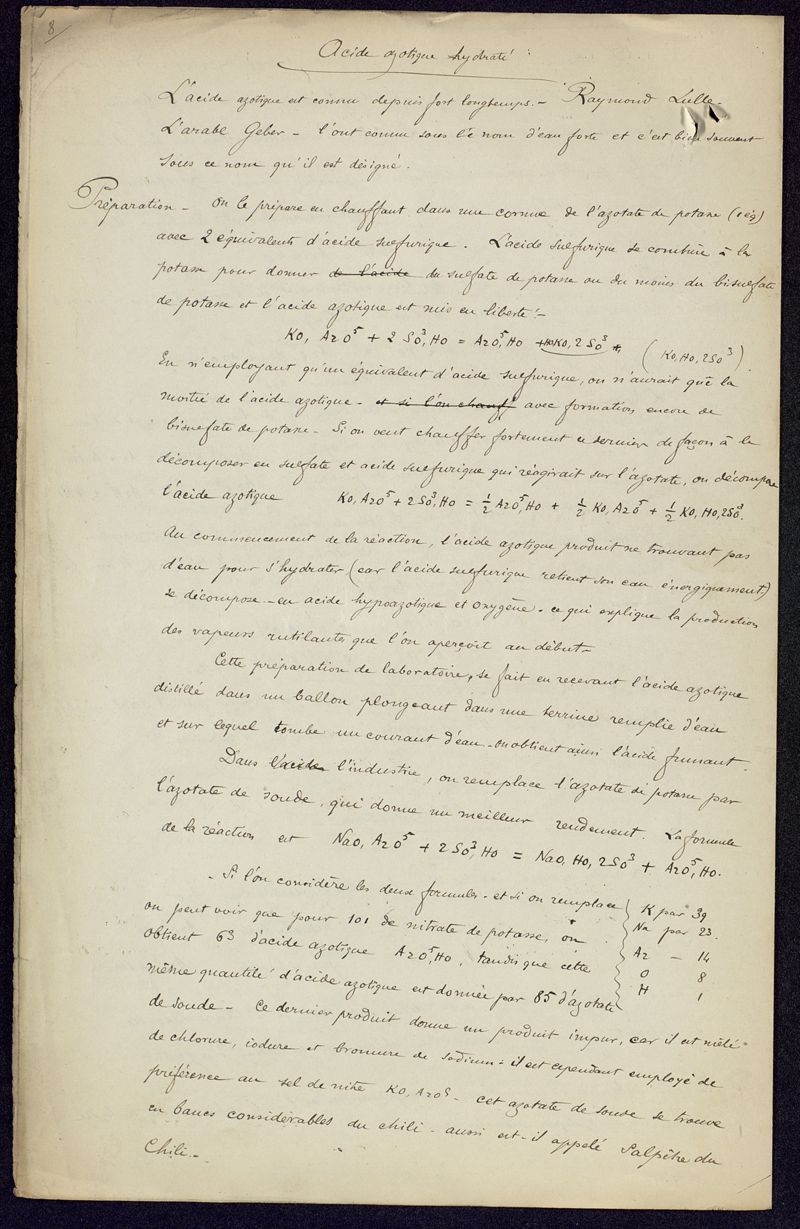 8
Acide azotique hydraté
L'acide azotique est connu depuis fort longtemps. - Raymond Lulle -
L'arabe Geber - l'ont connu sous le nom d'eau forte et c'est bien souvent
sous ce nom qu'il est désigné.
Préparation - On le prépare en chauffant dans une cornue de l'azotate de potasse (1 éq)
avec 2 équivalents d'acide sulfurique. L'acide sulfurique se combine à la
potasse pour donner de l'acide du sulfate de potasse ou du moins du bisulfate
de potasse et l'acide azotique est mis en liberté : -
KO, AzO⁵ + 2 SO³,HO = AzO⁵,HO + HO KO, 2SO³ (KO, HO, 2SO³)
En n'employant qu'un équivalent d'acide sulfurique, on n'aurait que la
moitié de l'acide azotique - et si l'on chauff avec formation encore de
bisulfate de potasse - Si on veut chauffer fortement ce dernier de façon à le
décomposer en sulfate et acide sulfurique qui réagirait sur l'azotate, on décompose
l'acide azotique KO, AzO⁵ + 2SO³,HO = ½ AzO⁵,HO + ½ KO, AzO⁵ + ½ KO, HO, 2SO³.
Au commencement de la réaction, l'acide azotique produit ne trouvant pas
d'eau pour s'hydrater (car l'acide sulfurique retient son eau énergiquement)
se décompose - en acide hypoazotique et oxygène - ce qui explique la production
des vapeurs rutilantes que l'on aperçoit au début -
Cette préparation de laboratoire, se fait en recevant l'acide azotique
distillé dans un ballon plongeant dans une terrine remplie d'eau
et sur lequel tombe un courant d'eau - on obtient ainsi l'acide fumant.
Dans l'acide l'industrie, on remplace l'azotate de potasse par
l'azotate de soude, qui donne un meilleur rendement. La formule
de la réaction est NaO, AzO⁵ + 2SO³,HO = NaO, HO, 2SO³ + AzO⁵,HO.
- Si l'on considère les deux formules - et si on remplace K par 39
on peut voir que pour 101 de nitrate de potasse, on Na par 23.
obtient 63 d'acide azotique AzO⁵,HO, tandis que cette Az - 14
même quantité d'acide azotique est donnée par 85 d'azotate O 8
H 1
de soude - Ce dernier produit donne un produit impur, car il est mêlé
de chlorure, iodure et bromure de sodium = il est cependant employé de
préférence au sel de nitre KO, AzO⁵ - cet azotate de soude se trouve
en bancs considérables du Chili - aussi est-il appelé Salpêtre du
Chili -